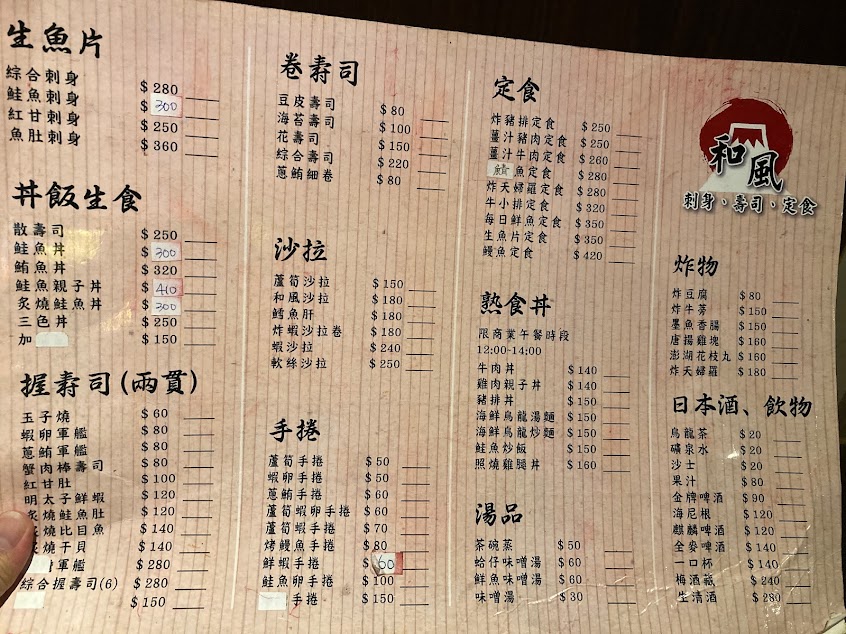 生魚片
綜合刺身 $280
鮭魚刺身 $300
紅甘刺身 $250
魚肚刺身 $360
丼飯生食
散壽司 $250
鮭魚丼 $300
鮪魚丼 $320
鮭魚親子丼 $410
炙燒鮭魚丼 $300
三色丼 $250
加 $150
握壽司(兩貫)
玉子燒 $60
蝦卵軍艦 $80
蔥鮪軍艦 $80
蟹肉棒壽司 $80
紅甘肚 $100
明太子鮮蝦 $120
炙燒鮭魚肚 $120
炙燒比目魚 $140
燒干貝 $140
軍艦 $280
綜合握壽司(6) $280
$150
卷壽司
豆皮壽司 $80
海苔壽司 $100
花壽司 $150
綜合壽司 $220
蔥鮪細卷 $80
沙拉
蘆筍沙拉 $150
和風沙拉 $180
鱈魚肝 $180
炸蝦沙拉卷 $180
蝦沙拉 $240
軟絲沙拉 $250
手捲
蘆筍手捲 $50
蝦卵手捲 $50
蔥鮪手捲 $60
蘆筍蝦卵手捲 $60
蘆筍蝦手捲 $70
烤鰻魚手捲 $80
鮮蝦手捲 $60
鮭魚卵手捲 $100
手捲 $150
定食
炸豬排定食 $250
薑汁豬肉定食 $250
薑汁牛肉定食 $260
魚定食 $280
炸天婦羅定食 $280
牛小排定食 $320
每日鮮魚定食 $350
生魚片定食 $350
鰻魚定食 $420
熟食丼
限商業午餐時段
12:00-14:00
牛肉丼 $140
雞肉親子丼 $140
豬排丼 $150
海鮮烏龍湯麵 $150
海鮮烏龍炒麵 $150
鮭魚炒飯 $150
照燒雞腿丼 $160
湯品
茶碗蒸 $50
蛤仔味噌湯 $60
鮮魚味噌湯 $60
味噌湯 $30
和風
刺身、壽司、定食
炸物
炸豆腐 $80
炸牛蒡 $150
墨魚香腸 $150
唐揚雞塊 $160
澎湖花枝丸 $160
炸天婦羅 $180
日本酒、飲物
烏龍茶 $20
礦泉水 $20
沙士 $20
果汁 $80
金牌啤酒 $90
海尼根 $120
麒麟啤酒 $120
全麥啤酒 $140
一口杯 $140
梅酒 $240
生清酒 $280